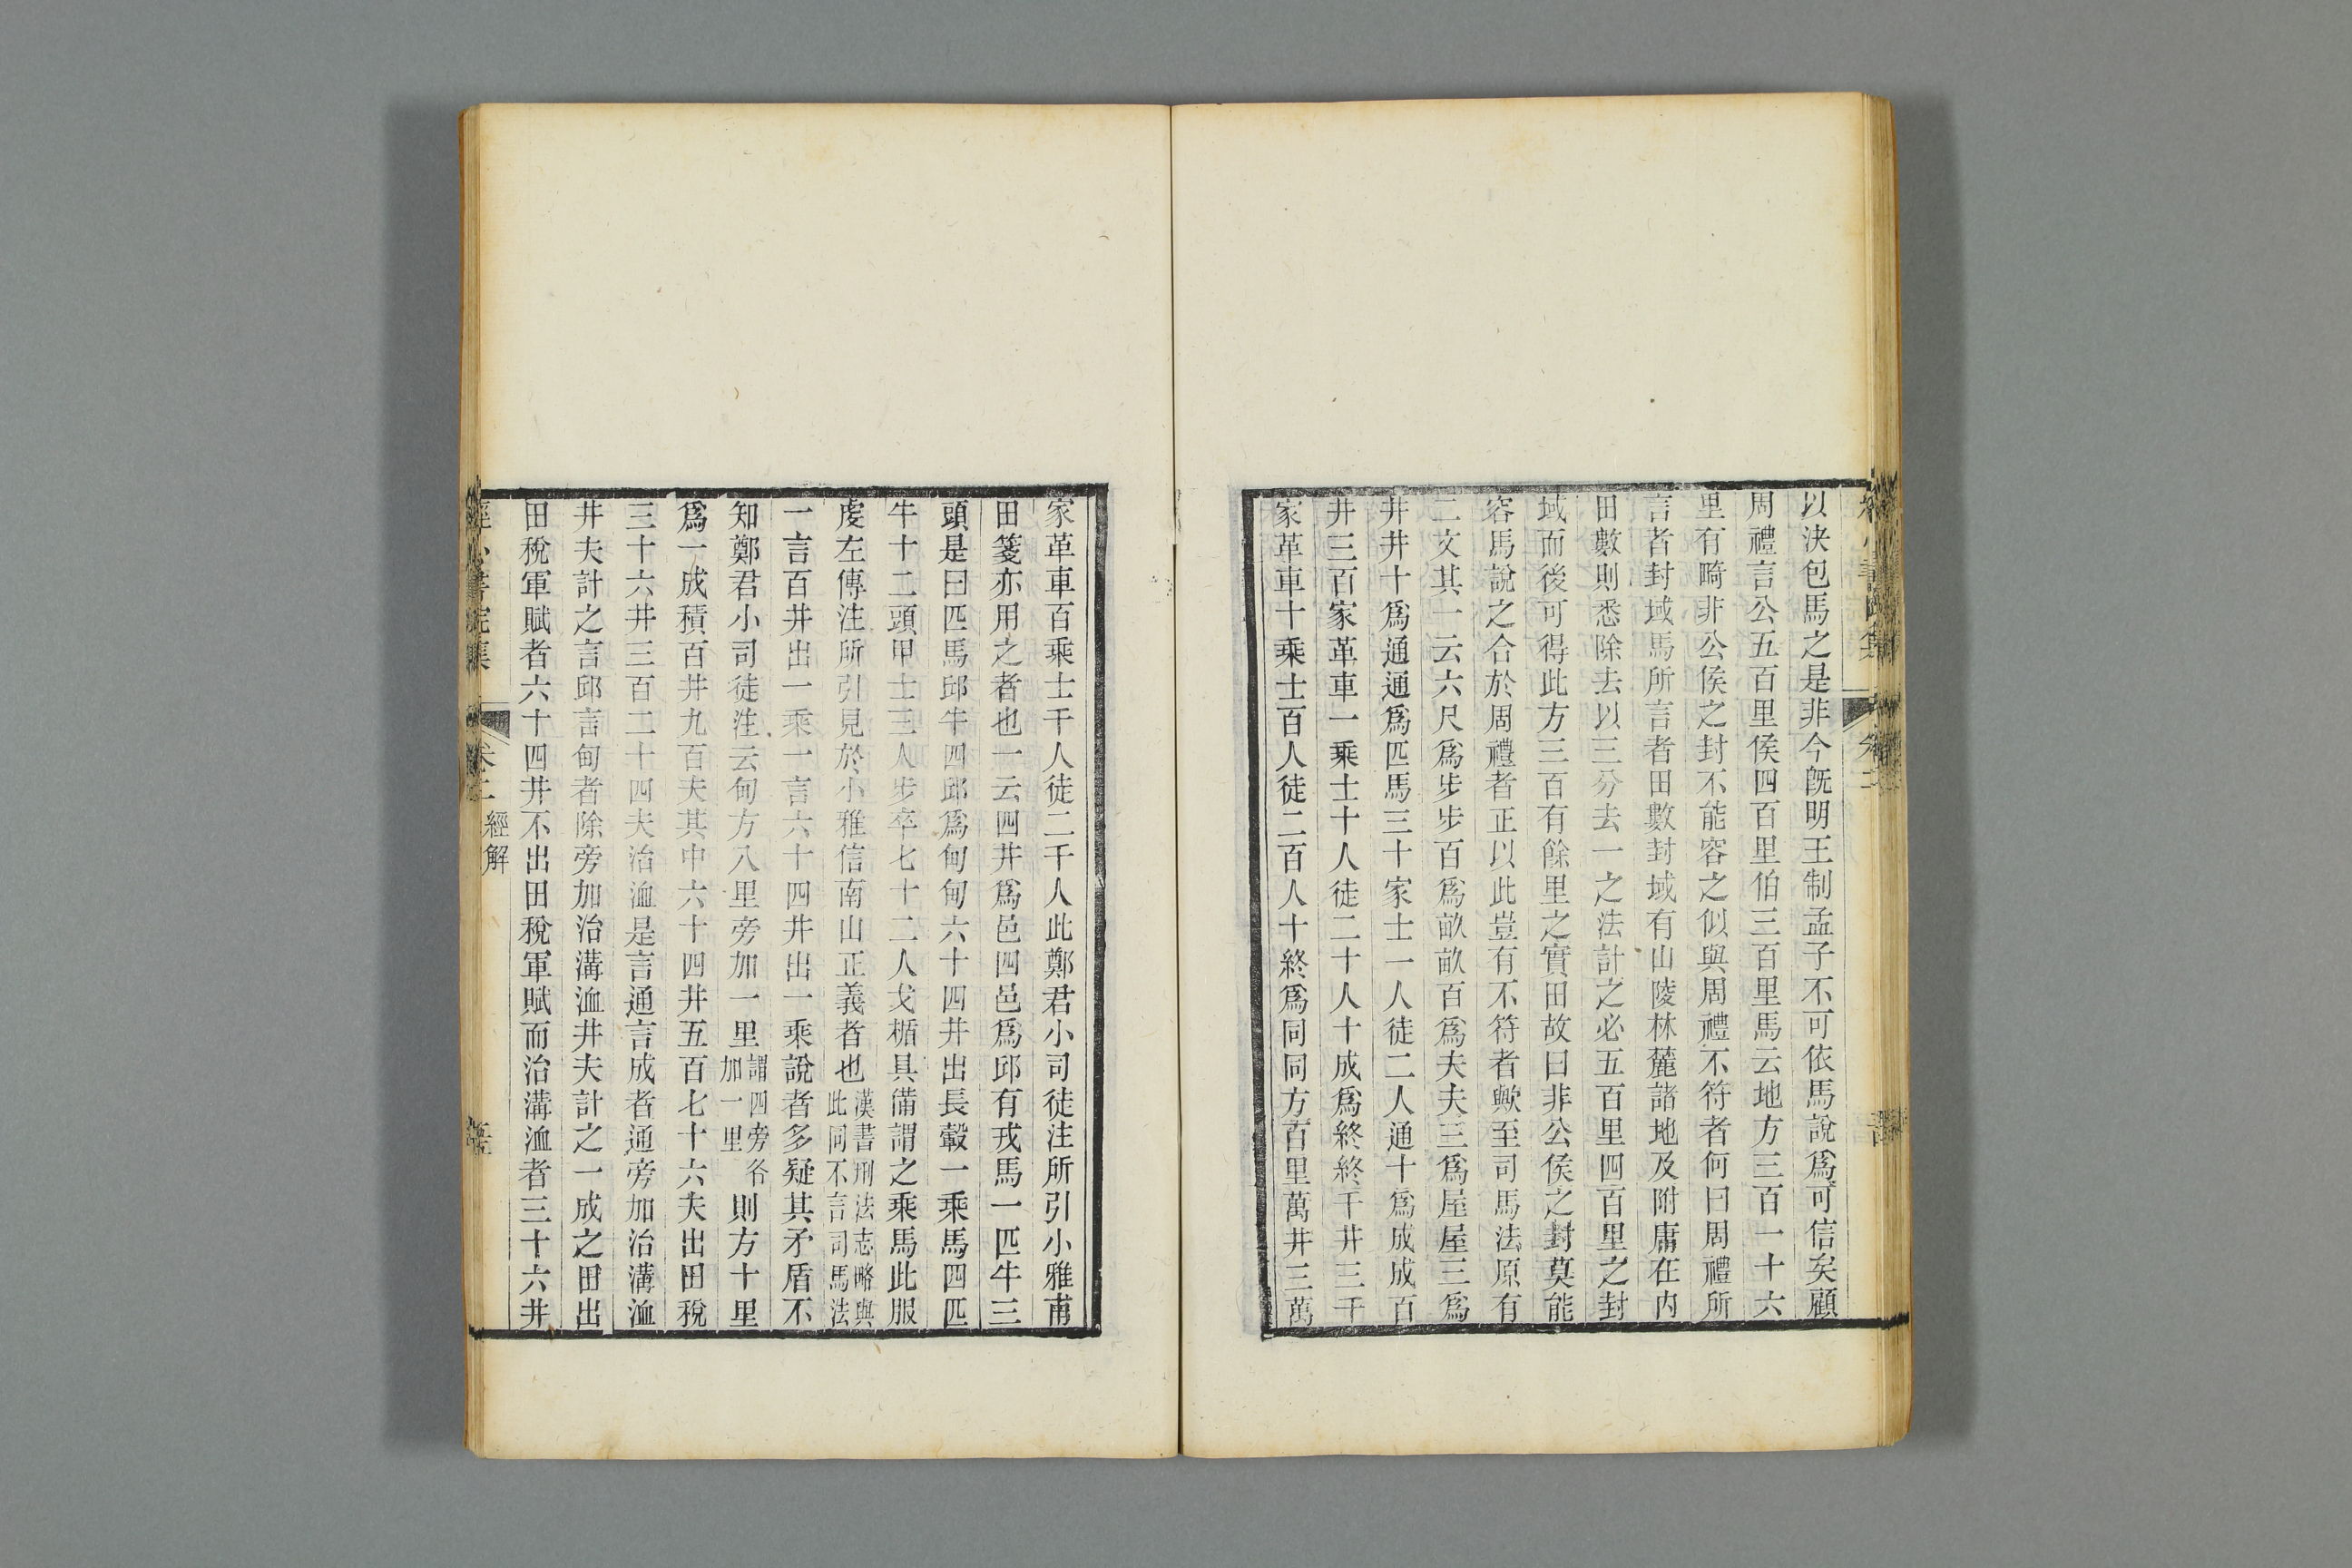 以決包馬之是非今既明王制孟子不可依馬說爲可信矣顧
周禮言公五百里侯四百里伯三百里馬云地方三百一十六
里有畸非公侯之封不能容之似與周禮不符者何曰周禮所
言者封域馬所言者田數封域有山陵林麓諸地及附庸在內
田數則悉除去以三分去一之法計之必五百里四百里之封
域而後可得此方三百有餘里之實田故曰非公侯之封莫能
容馬說之合於周禮者正以此豈有不符者歟至司馬法原有
二文其一云六尺爲步步百爲畝畝百爲夫夫三爲屋屋三爲
井井十爲通通爲匹馬三十家士一人徒二人通十爲成成百
井三百家革車一乘士十人徒二十人十成爲終終千井三千
家革車十乘士百人徒二百人十終爲同同方百里萬井三萬
家革車百乘士千人徒二千人此鄭君小司徒注所引小雅甫
田箋亦用之者也一云四井爲邑四邑爲邱有戎馬一匹牛三
頭是曰匹馬邱牛四邱爲甸甸六十四井出長轂一乘馬四匹
牛十二頭甲士三人步卒七十二人戈楯具備謂之乘馬此服
虔左傳注所引見於小雅信南山正義者也漢書刑法志略與此同不言司馬法
一言百井出一乘一言六十四井出一乘說者多疑其矛盾不
知鄭君小司徒注云甸方八里旁加一里謂四旁各加一里則方十里
爲一成積百井九百夫其中六十四井五百七十六夫出田稅
三十六井三百二十四夫治洫是言通言成者通旁加治溝洫
井夫計之言邱言甸者除旁加治溝洫井夫計之一成之田出
田稅軍賦者六十四井不出田稅軍賦而治溝洫者三十六井
經心書院集 卷二 經解